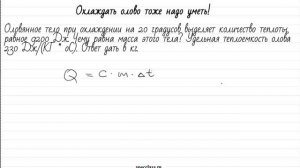 Охлаждать олово тоже надо уметь!
Оловянное тело при охлаждении на 20 градусов выделяет количество теплоты,
равное 9200 Дж. Чему равна масса этого тела? Удельная теплоемкость олова
230 Дж/(кг * оС). Ответ дать в кг.
Q = c · m · Δt